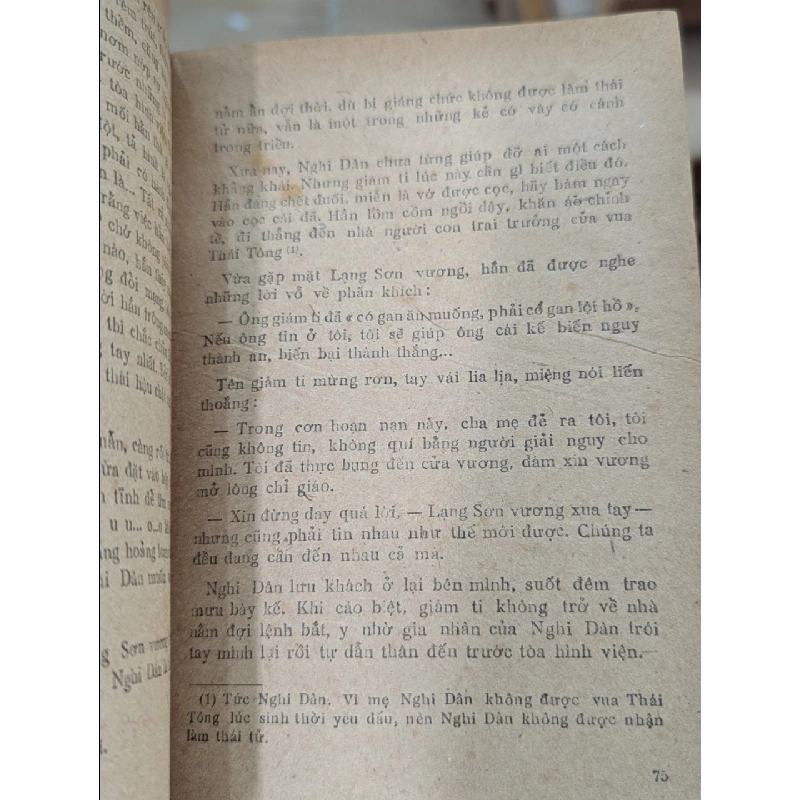 rèm trúc,
thêm, cũng
nơm nớp sợ
trước những
tòa hình viện
mỗi hắn
một, tả
phải có
là... Tất cả
rằng việc
chở không
nào, hắn
đồi mạng
hắn
thì chắc
tay nhất.
thái hậu
mẫn, càng
đặt vào
tĩnh để tìm
u u... o...o
hoảng
Dân muốn
Sơn vương
Nghi Dân
nằm ẩn đợi thời, dù bị giáng chức không được làm thái
tử nữa, vẫn là một trong những kẻ có vây có cánh
trong triều.
Xưa nay, Nghi Dân chưa từng giúp đỡ ai một cách
khảng khái. Nhưng giám ti lúc này cần gì biết điều đó.
Hắn đang chết đuối, miễn là vớ được cọc, hãy bám ngay
vào cọc cái đã. Hắn lồm cồm ngồi dậy, khăn áo chỉnh
tề, đi thẳng đến nhà người con trai trưởng của vua
Thái Tông (1).
Vừa gặp mặt Lạng Sơn vương, hắn đã được nghe
những lời vỗ về phấn khích :
— Ông giám ti đã « có gan ăn muống, phải có gan lội hồ ».
Nếu ông tin ở tôi, tôi sẽ giúp ông cái kế biến nguy
thành an, biến bại thành thắng...
Tên giám ti mừng rơn, tay vái lia lịa, miệng nói liến
thoắng :
— Trong cơn hoạn nạn này, cha mẹ đẻ ra tôi, tôi
cũng không tin, không quí bằng người giải nguy cho
mình. Tôi đã thực bụng đến cửa vương, dám xin vương
mở lòng chỉ giáo.
— Xin đừng dạy quá lời, — Lạng Sơn vương xua tay —
nhưng cũng phải tin nhau như thế mới được. Chúng ta
đều đang cần đến nhau cả mà.
Nghi Dân lưu khách ở lại bên mình, suốt đêm trao
mưu bày kế. Khi cáo biệt, giám ti không trở về nhà
nằm đợi lệnh bắt, y nhờ gia nhân của Nghi Dân trói
tay mình lại rồi tự dẫn thân đến trước tòa hình viện.
(1) Tức Nghi Dân. Vì mẹ Nghi Dân không được vua Thái
Tông lúc sinh thời yêu dấu, nên Nghi Dân không được nhận
làm thái tử.
75